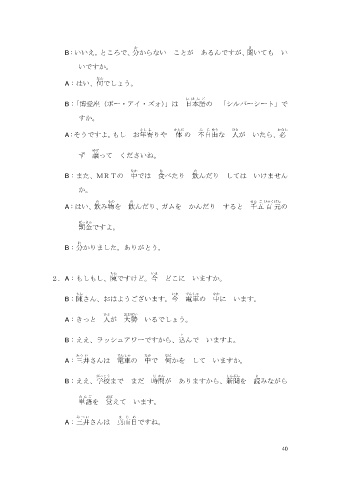 B：いいえ。ところで、分からない　ことが　あるんですが、聞いても　い
いですか。
A：はい、何でしょう。
B：「博愛座（ボー・アイ・ズォ）」は　日本語の　「シルバーシート」で
すか。
A：そうですよ。もし　お年寄りや　体の　不自由な　人が　いたら、必
ず　譲って　くださいね。
B：また、ＭＲＴの　中では　食べたり　飲んだり　しては　いけません
か。
A：はい、飲み物を　飲んだり、ガムを　かんだり　すると　千五百元の
罰金ですよ。
B：分かりました。ありがとう。
2．A：もしもし、陳ですけど。今　どこに　いますか。
B：陳さん、おはようございます。今　電車の　中に　います。
A：きっと　人が　大勢　いるでしょう。
B：ええ、ラッシュアワーですから、込んで　いますよ。
A：三井さんは　電車の　中で　何かを　して　いますか。
B：ええ、学校まで　まだ　時間が　ありますから、新聞を　読みながら
単語を　覚えて　います。
A：三井さんは　真面目ですね。
40